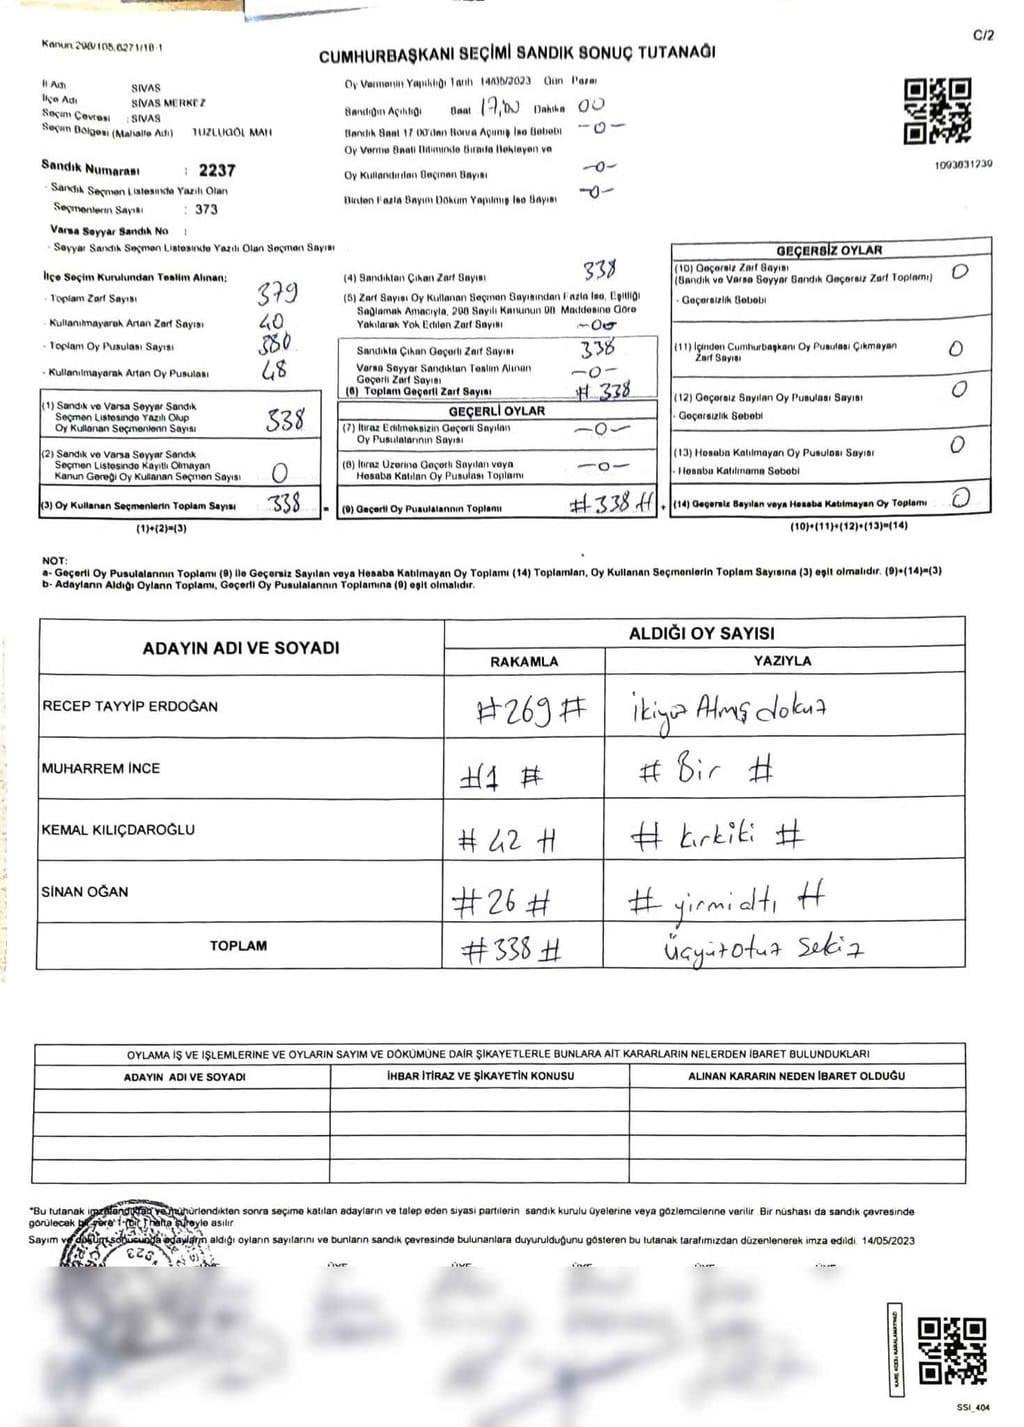 Kanun 298/105,6271/18-1
C/2
CUMHURBAŞKANI SEÇİMİ SANDIK SONUÇ TUTANAĞI
İl Adı SİVAS
İlçe Adı SİVAS MERKEZ
Seçim Çevresi : SİVAS
Seçim Bölgesi (Mahalle Adı) TUZLUGÖL MAH
Oy Vermenin Yapıldığı Tarih 14/05/2023 Gün Pazar
Sandığın Açıldığı Saat 17,00 Dakika 00
Sandık Saat 17 00'den Sonra Açılmış İse Sebebi -0-
Oy Verme Saati Bitiminde Sırada Bekleyen ve
Oy Kullandırılan Seçmen Sayısı -0-
Birden Fazla Sayım Döküm Yapılmış İse Sayısı -0-
1093031239
Sandık Numarası : 2237
- Sandık Seçmen Listesinde Yazılı Olan
Seçmenlerin Sayısı : 373
Varsa Seyyar Sandık No :
- Seyyar Sandık Seçmen Listesinde Yazılı Olan Seçmen Sayısı
İlçe Seçim Kurulundan Teslim Alınan;
- Toplam Zarf Sayısı 379
- Kullanılmayarak Artan Zarf Sayısı 40
- Toplam Oy Pusulası Sayısı 380
- Kullanılmayarak Artan Oy Pusulası 48
(1) Sandık ve Varsa Seyyar Sandık
Seçmen Listesinde Yazılı Olup
Oy Kullanan Seçmenlerin Sayısı 338
(2) Sandık ve Varsa Seyyar Sandık
Seçmen Listesinde Kayıtlı Olmayan
Kanun Gereği Oy Kullanan Seçmen Sayısı 0
(3) Oy Kullanan Seçmenlerin Toplam Sayısı 338 =
(1)+(2)=(3)
(4) Sandıktan Çıkan Zarf Sayısı 338
(5) Zarf Sayısı Oy Kullanan Seçmen Sayısından Fazla İse, Eşitliği
Sağlamak Amacıyla, 298 Sayılı Kanunun 98 Maddesine Göre
Yakılarak Yok Edilen Zarf Sayısı
Sandıkta Çıkan Geçerli Zarf Sayısı 338
Varsa Seyyar Sandıktan Teslim Alınan
Geçerli Zarf Sayısı -0-
(6) Toplam Geçerli Zarf Sayısı # 338
GEÇERLİ OYLAR
(7) İtiraz Edilmeksizin Geçerli Sayılan
Oy Pusulalarının Sayısı -0-
(8) İtiraz Üzerine Geçerli Sayılan veya
Hesaba Katılan Oy Pusulası Toplamı -0-
(9) Geçerli Oy Pusulalarının Toplamı #338# +
GEÇERSİZ OYLAR
(10) Geçersiz Zarf Sayısı
(Sandık ve Varsa Seyyar Sandık Geçersiz Zarf Toplamı) 0
- Geçersizlik Sebebi
(11) İçinden Cumhurbaşkanı Oy Pusulası Çıkmayan
Zarf Sayısı 0
(12) Geçersiz Sayılan Oy Pusulası Sayısı 0
- Geçersizlik Sebebi
(13) Hesaba Katılmayan Oy Pusulası Sayısı 0
- Hesaba Katılmama Sebebi
(14) Geçersiz Sayılan veya Hesaba Katılmayan Oy Toplamı 0
(10)+(11)+(12)+(13)=(14)
NOT:
a- Geçerli Oy Pusulalarının Toplamı (9) ile Geçersiz Sayılan veya Hesaba Katılmayan Oy Toplamı (14) Toplamları, Oy Kullanan Seçmenlerin Toplam Sayısına (3) eşit olmalıdır. (9)+(14)=(3)
b- Adayların Aldığı Oyların Toplamı, Geçerli Oy Pusulalarının Toplamına (9) eşit olmalıdır.
ADAYIN ADI VE SOYADI
ALDIĞI OY SAYISI
RAKAMLA YAZIYLA
RECEP TAYYİP ERDOĞAN #269# ikiyüz Atmış dokuz
MUHARREM İNCE #1 # # Bir #
KEMAL KILIÇDAROĞLU # 42 # # kırkiki #
SİNAN OĞAN #26 # # yirmialtı #
TOPLAM #338# Üçyüzotuz sekiz
OYLAMA İŞ VE İŞLEMLERİNE VE OYLARIN SAYIM VE DÖKÜMÜNE DAİR ŞİKAYETLERLE BUNLARA AİT KARARLARIN NELERDEN İBARET BULUNDUKLARI
ADAYIN ADI VE SOYADI İHBAR İTİRAZ VE ŞİKAYETİN KONUSU ALINAN KARARIN NEDEN İBARET OLDUĞU
*Bu tutanak imzalandıktan ve mühürlendikten sonra seçime katılan adayların ve talep eden siyasi partilerin sandık kurulu üyelerine veya gözlemcilerine verilir Bir nüshası da sandık çevresinde
görülecek bir yere 1 (bir) hafta süreyle asılır
Sayım ve döküm sonucunda adayların aldığı oyların sayılarını ve bunların sandık çevresinde bulunanlara duyurulduğunu gösteren bu tutanak tarafımızdan düzenlenerek imza edildi. 14/05/2023
KARE KODU KARALAMAYINIZ!
SSI_404